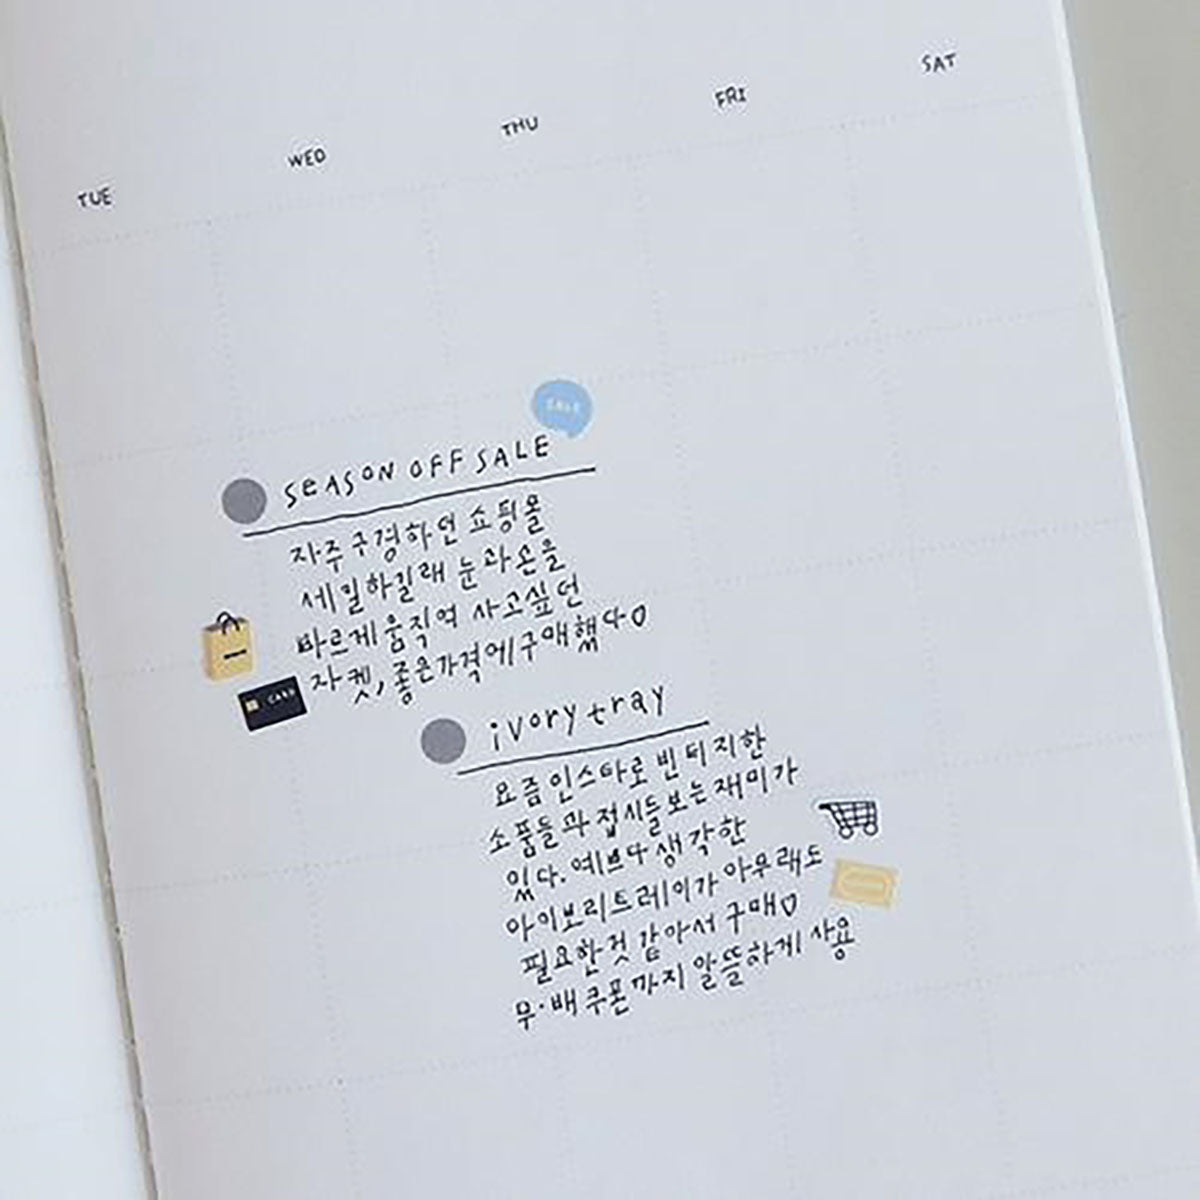 TUE
WED
THU
FRI
SAT
SALE
SEASON OFF SALE
자주 구경하던 쇼핑몰
세일하길래 눈과 손을
바르게 움직여 사고싶던
자켓, 좋은가격에 구매했다♡
CARD
ivory tray
요즘 인스타로 빈티지한
소품들과 접시들 보는 재미가
있다. 예쁘다 생각한
아이보리트레이가 아무래도
필요한것 같아서 구매♡
무·배 쿠폰까지 알뜰하게 사용